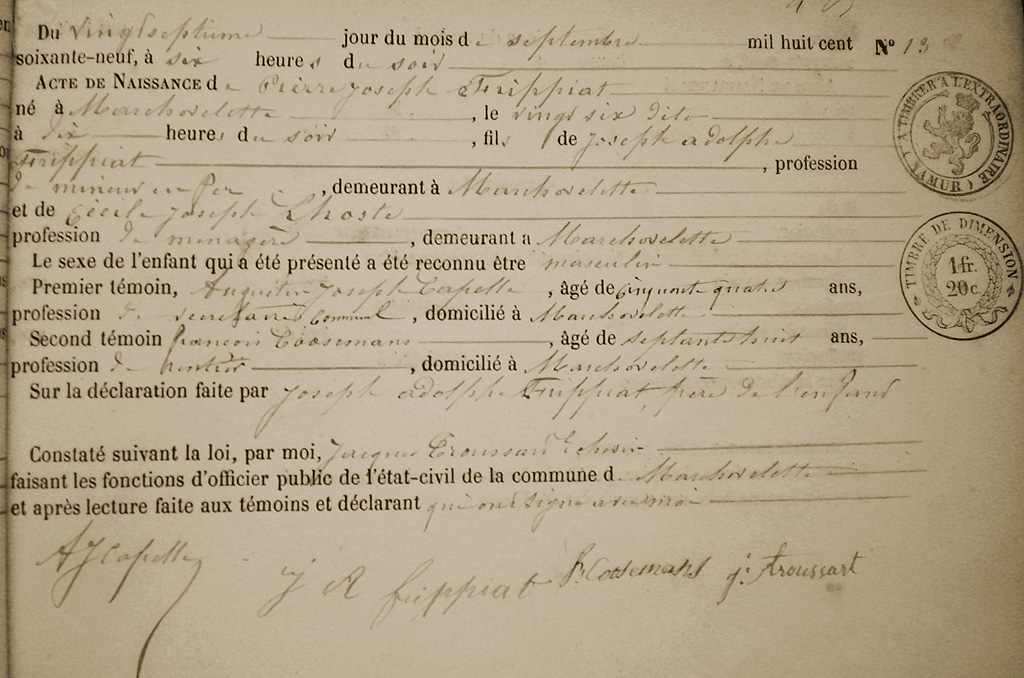 Du vingtseptieme jour du mois de septembre mil huit cent N° 13
soixante-neuf, à six heures du soir
ACTE DE NAISSANCE de Pierre joseph Frippiat
né à Marchovelette, le vingt six dito
à dix heures du soir, fils de joseph adolphe
Frippiat, profession
de mineur en fer, demeurant à Marchovelette
et de Cécile joseph Lhoste
profession de menagère, demeurant a Marchovelette
Le sexe de l'enfant qui a été présenté a été reconnu être masculin
Premier témoin, Augustin joseph Capelle, âgé de cinquante quatre ans,
profession de secretaire communal, domicilié à Marchovelette
Second témoin françois Coosemans, âgé de septante huit ans,
profession de rentier, domicilié à Marchovelette
Sur la déclaration faite par joseph adolphe Frippiat père de l'enfant
Constaté suivant la loi, par moi, jacques Troussart Echevin
faisant les fonctions d'officier public de l'état-civil de la commune de Marchovelette
et après lecture faite aux témoins et déclarant qui ont signé avec moi
AJCapelle
j A frippiat
Coosemans
j: troussart
TIMBRER A L'EXTRAORDINAIRE
(NAMUR)
TIMBRE DE DIMENSION
1 fr.
20 c.